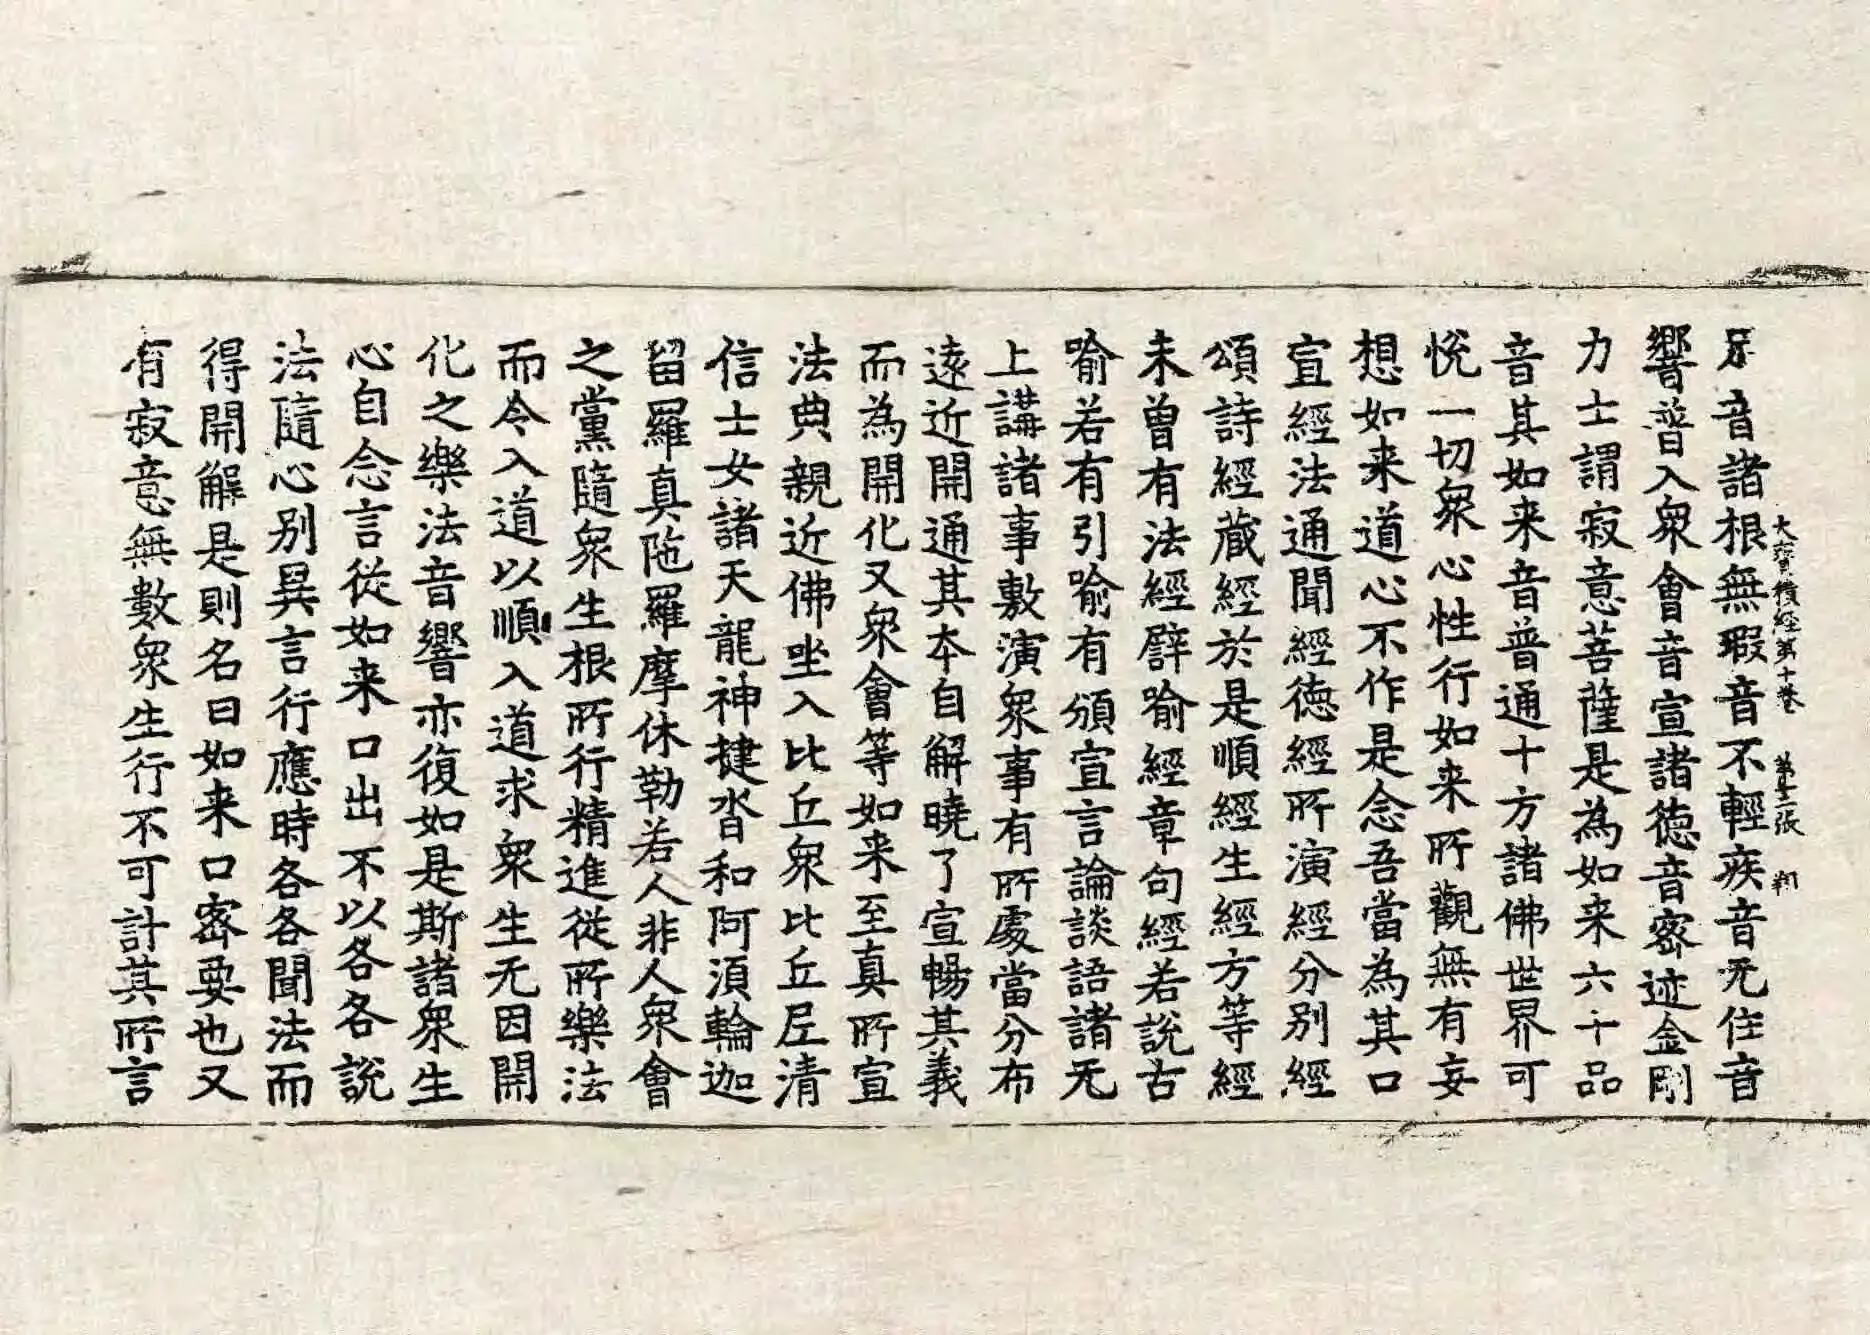 大寶積經第十卷 第十二張
音諸根無瑕音不輕疾音无住音
響普入眾會音宣諸德音密迹金剛
力士謂寂意菩薩是為如来六十品
音其如来音普通十方諸佛世界可
悅一切眾心性行如来所觀無有妄
想如来道心不作是念吾當為其口
宣經法通聞經德經所演經分別經
頌詩經蔵經於是順經生經方等經
未曾有法經譬喻經章句經若說古
喻若有引喻有頒宣言論談語諸无
上講諸事敷演眾事有所處當分布
遠近開通其本自解曉了宣暢其義
而為開化又眾會等如来至真所宣
法典親近佛坐入比丘眾比丘尼清
信士女諸天龍神揵沓和阿須輪迦
留羅真陁羅摩休勒若人非人眾會
之黨隨眾生根所行精進從所樂法
而令入道以順入道求眾生无因開
化之樂法音響亦復如是斯諸眾生
心自念言從如来口出不以各各說
法隨心別異言行應時各各聞法而
得開解是則名曰如来口密要也又
有寂意無數眾生行不可計其所言